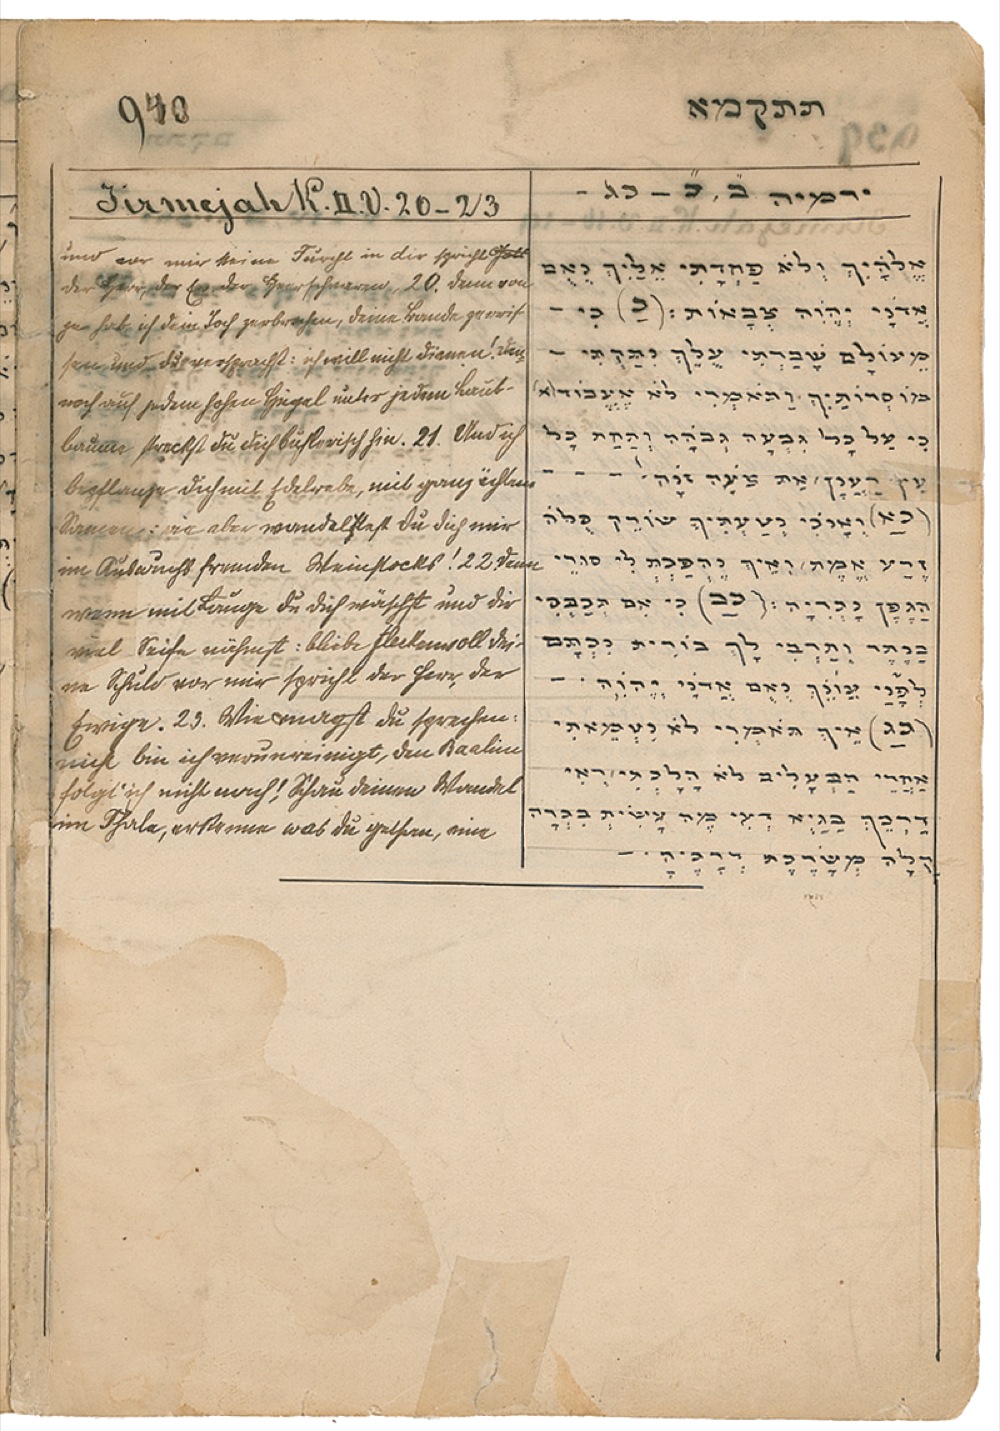 940
תתקמא
Jirmejah K. II. V. 20-23
und vor mir keine Furcht in dir spricht Gott
der Herr, der Ew. der Heerschaaren. 20. denn von
je hab ich dein Joch zerbrochen, deine Bande zerris-
sen und du versprachst: ich will nicht dienen! den
noch auf jedem hohen Hügel unter jedem Laub-
baume streckst du dich buhlerisch hin. 21. Und ich
bepflanze dich mit Edelrebe, mit ganz ächtem
Samen: wie aber wandeltest du dich mir
im Auswuchs fremden Weinstocks! 22 Denn
wenn mit Lauge du dich wäschst und dir
viel Seife nähmst: bliebe fleckenvoll dei-
ne Schuld vor mir spricht der Herr, der
Ewige. 23. Wie magst du sprechen:
nicht bin ich verunreinigt, den Baalim
folgt' ich nicht nach! Schau deinen Wandel
im Thale, erkenne was du gethan, eine
ירמיה ב', כ' – כג –
אֱלֹהָיִךְ וְלֹא פַחְדָתִי אֵלַיִךְ נְאֻם
אֲדֹנָי יְהֹוִה צְבָאוֹת: (כ) כִּי –
מֵעוֹלָם שָׁבַרְתִּי עֻלֵּךְ נִתַּקְתִּי –
מוֹסְרוֹתַיִךְ וַתֹּאמְרִי לֹא אֶעֱבוֹד(א)
כִּי עַל כָּל גִּבְעָה גְּבֹהָה וְתַחַת כָּל
עֵץ רַעֲנָן אַתְּ צֹעָה זֹנָה: – – –
(כא) וְאָנֹכִי נְטַעְתִּיךְ שׂוֹרֵק כֻּלֹּה
זֶרַע אֱמֶת וְאֵיךְ נֶהְפַּכְתְּ לִי סוּרֵי
הַגֶּפֶן נָכְרִיָּה: (כב) כִּי אִם תְּכַבְּסִי
בַּנֶּתֶר וְתַרְבִּי לָךְ בּוֹרִית נִכְתָּם
לְפָנַי עֲוֹנֵךְ נְאֻם אֲדֹנָי יְהֹוִה: –
(כג) אֵיךְ תֹּאמְרִי לֹא נִטְמֵאתִי
אַחֲרֵי הַבְּעָלִים לֹא הָלַכְתִּי רְאִי
דַרְכֵּךְ בַּגַּיְא דְּעִי מֶה עָשִׂית בִּכְרָה
קַלָּה מְשָׂרֶכֶת דְּרָכֶיהָ: –